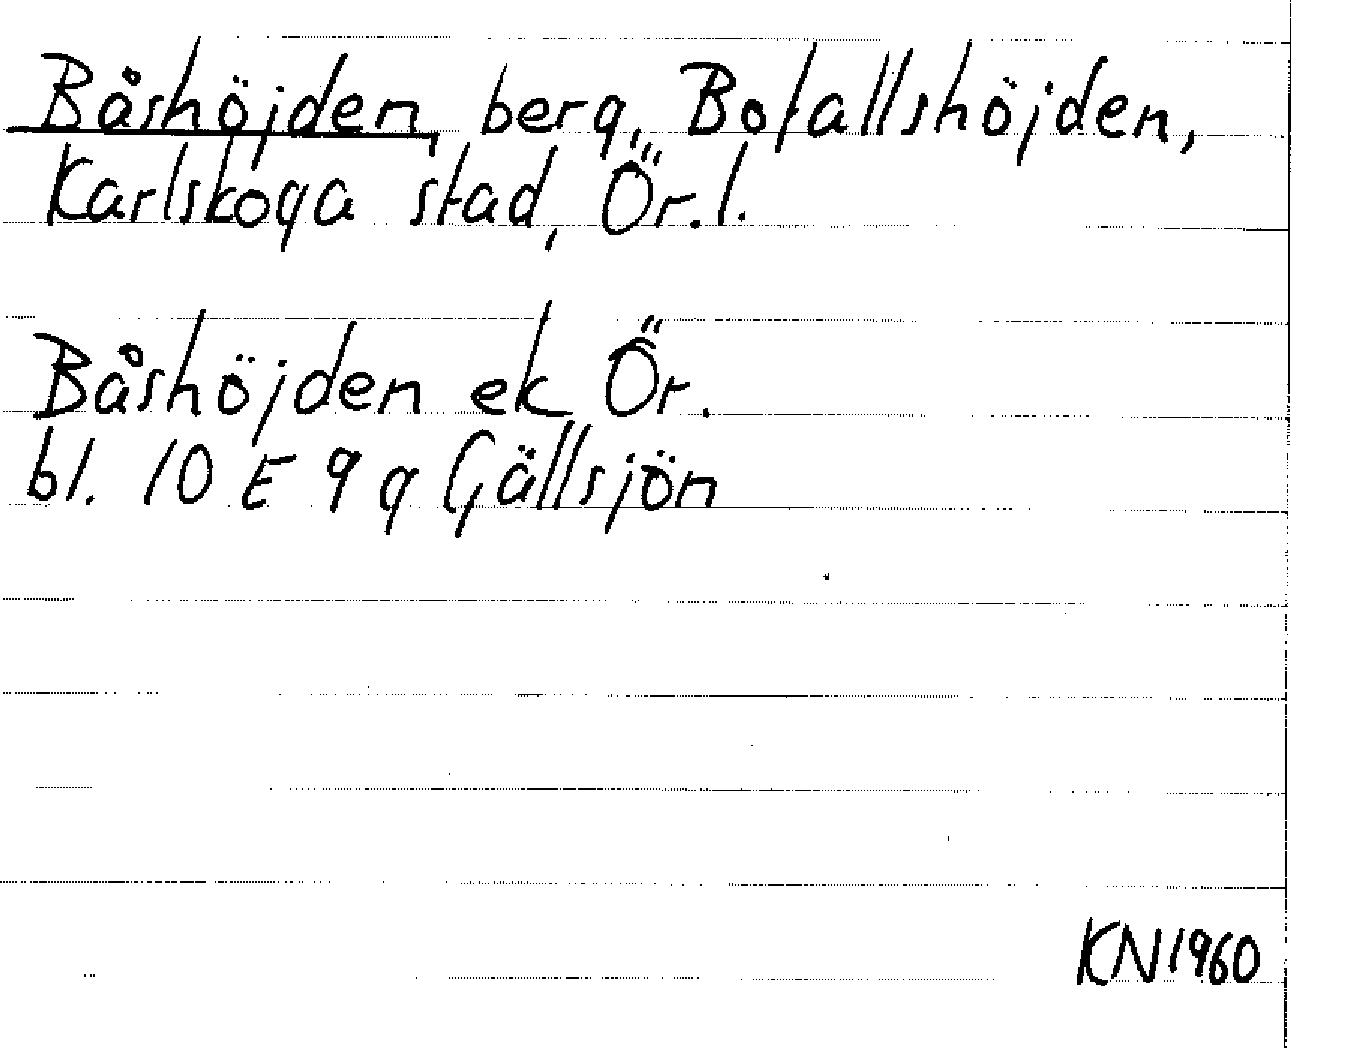 Båshöjden, berg, Bofallshöjden,
Karlskoga stad, Ör.l.
Båshöjden ek Ör.
bl. 10 E 9 g Gällsjön
KN1960